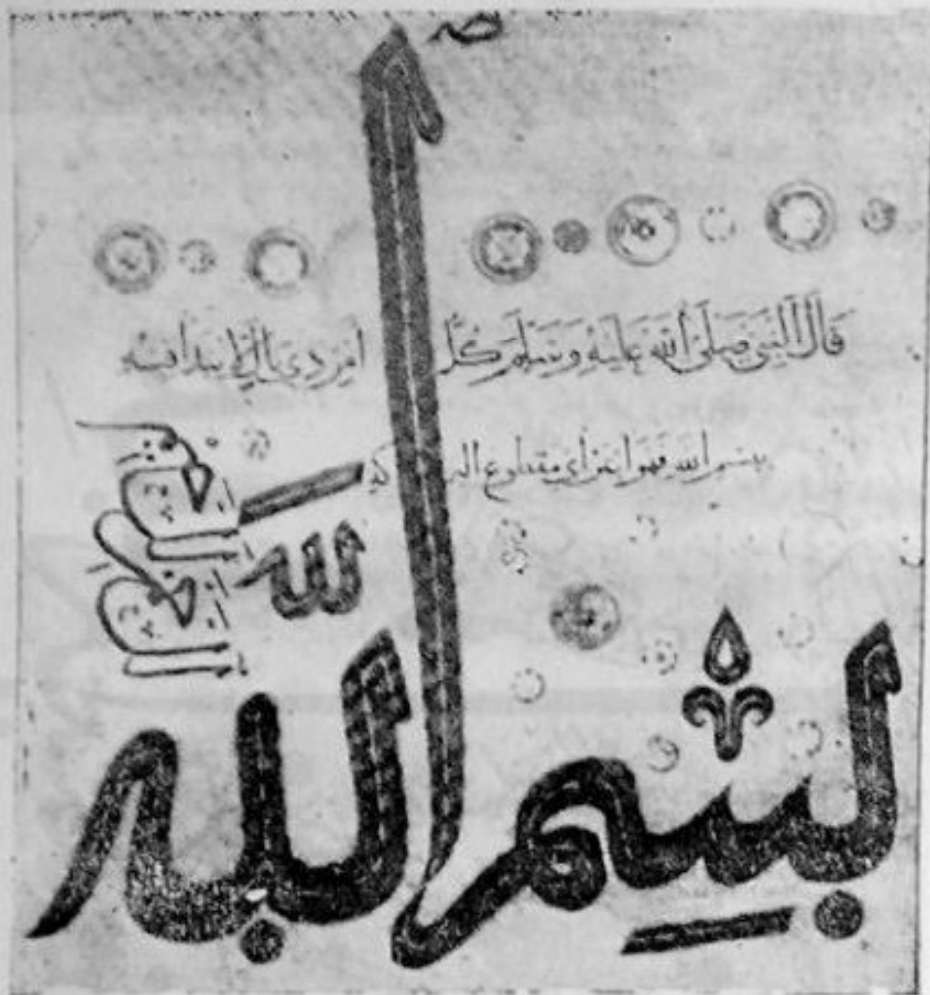 قَالَ النَّبِيُّ صَلَّى اللهُ عَلَيْهِ وَسَلَّمَ كُلُّ امر ذي بال يبدا فيه
ببسم الله فهو اي مقطوع البركة
لله
بِسْمِ الله